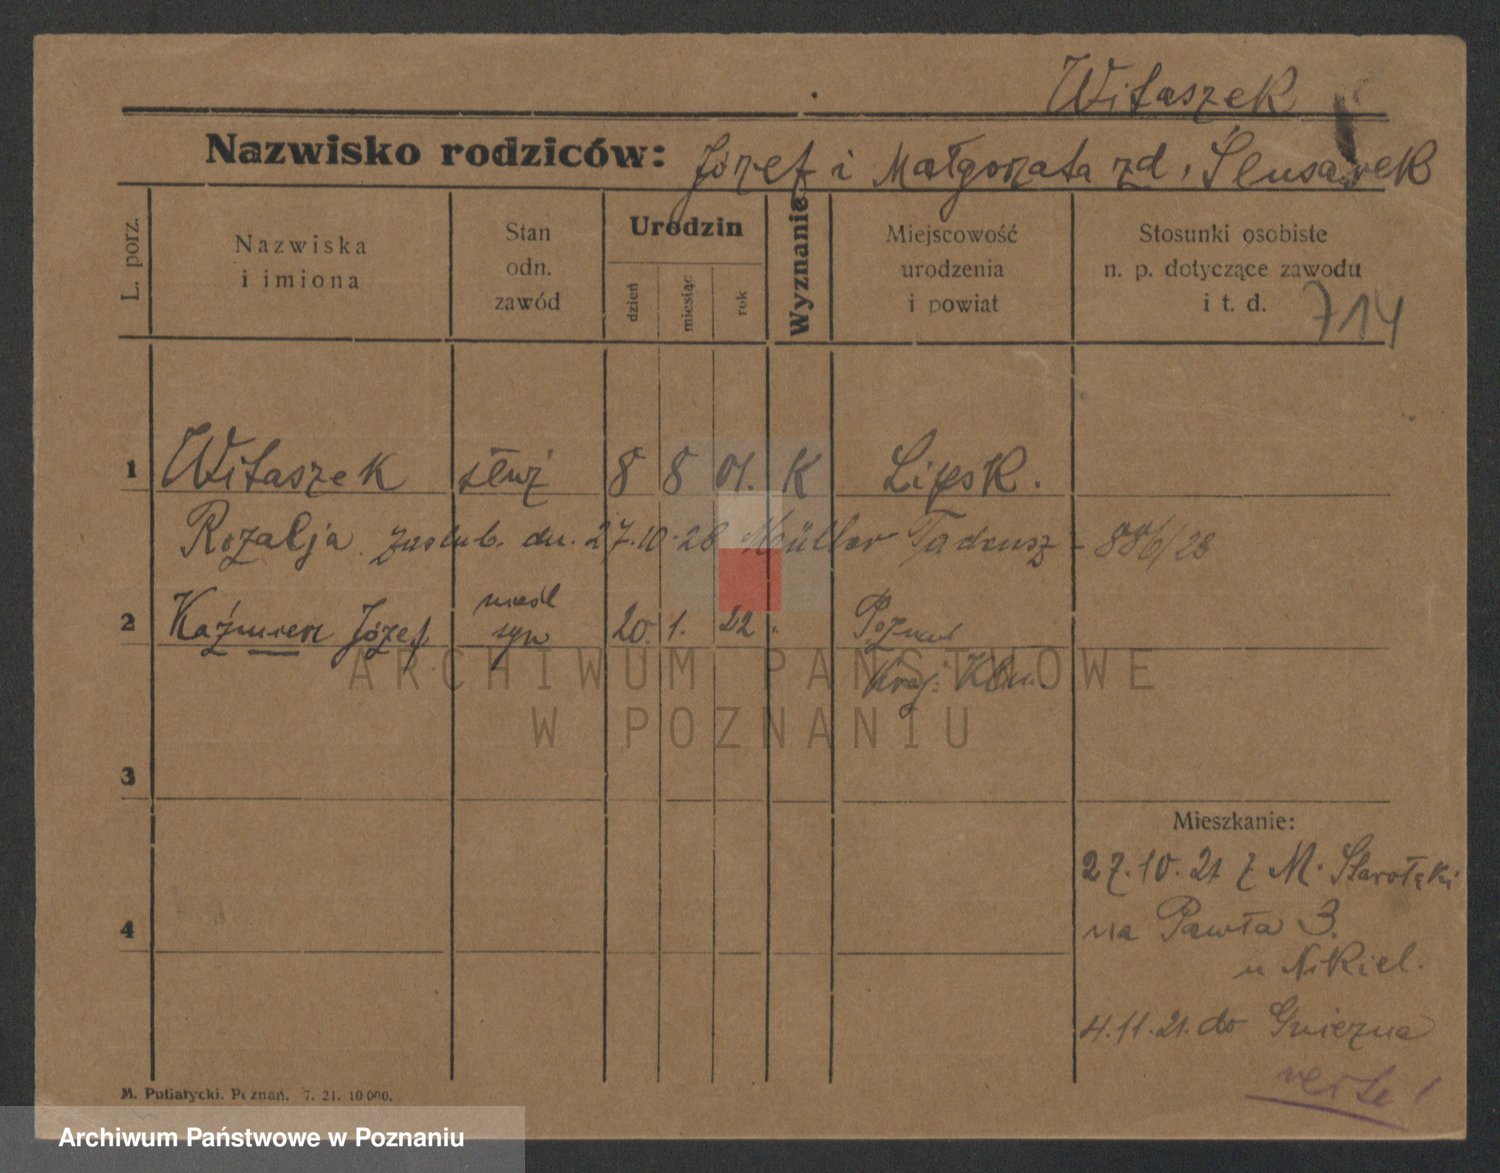 Witaszek
Nazwisko rodziców: Józef i Małgorzata zd. Ślusarek
L. porz.
Nazwiska
i imiona
Stan
odn.
zawód
Urodzin
dzień
miesiąc
rok
Wyznanie
Miejscowość
urodzenia
i powiat
Stosunki osobiste
n. p. dotyczące zawodu
i t. d.
714
1 Witaszek służ 8 8 01. K Lipsk.
Rozalja zaślub. dn. 27.10.28 Müller Tadeusz - 886/28
nieśl
2 Kaźmierz Józef syn 20. 1. 22. Poznań
ARCHIWUM PAŃSTWOWE
W POZNANIU
3
Mieszkanie:
27.10.21 z M. Starołęki
4
na Pawła 3.
u Nikiel.
4.11.21. do Gniezna
verte!
M. Putiatycki. Poznań. 7. 21. 10 000.
Archiwum Państwowe w Poznaniu